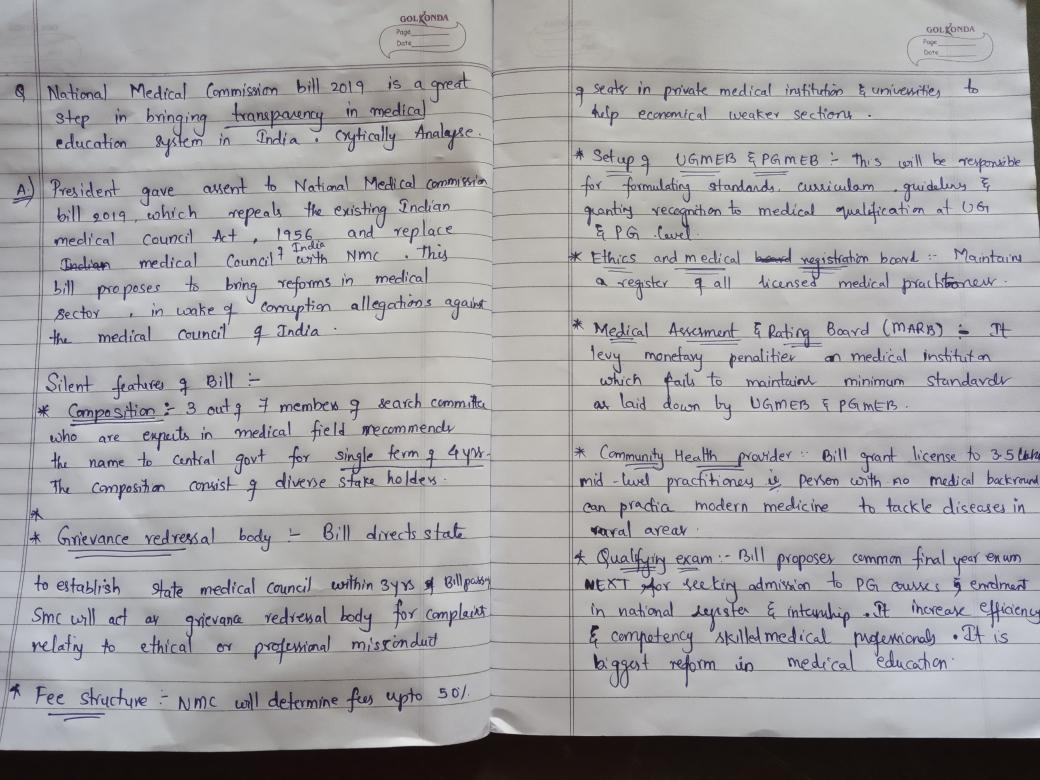 GOLKONDA
Page
Date
Q National Medical Commission bill 2019 is a great
step in bringing transparency in medical
education system in India. Crytically Analyse.
A.) President gave assent to National Medical commission
bill 2019, which repeals the existing Indian
medical Council Act, 1956 and replace
Indian medical Council of India with NMC. This
bill proposes to bring reforms in medical
sector, in wake of corruption allegations against
the medical council of India.
Silent features of Bill :-
* Composition :- 3 out of 7 members of search committe
who are experts in medical field recommends
the name to central govt for single term of 4 yrs.
The composition consist of diverse stake holders.
*
* Grievance redressal body :- Bill directs state
to establish state medical council within 3 yrs of Bill passing
SMC will act as grievance redressal body for complaint
relating to ethical or professional misconduct
* Fee structure :- NMC will determine fees upto 50%
GOLKONDA
Page
Date
of seats in private medical institution & universities to
help economical weaker sections.
* Setup of UGMEB & PGMEB :- this will be responsible
for formulating standards, curriculam, guidelines &
granting recognition to medical qualification at UG
& PG level.
* Ethics and medical board registration board :- Maintains
a register of all licensed medical practitioner.
* Medical Assesment & Rating Board (MARB) :- It
levy monetary penalities on medical institution
which fails to maintains minimum standards
as laid down by UGMEB & PGMEB.
* Community Health provider :- Bill grant license to 3.5 lakh
mid-level practitioners ie person with no medical backround
can practice modern medicine to tackle diseases in
rural areas.
* Qualifying exam :- Bill proposes common final year exam
NEXT for seeking admission to PG courses, enrolment
in national register & internship. It increase efficiency
& competency skilled medical professionals. It is
biggest reform in medical education.